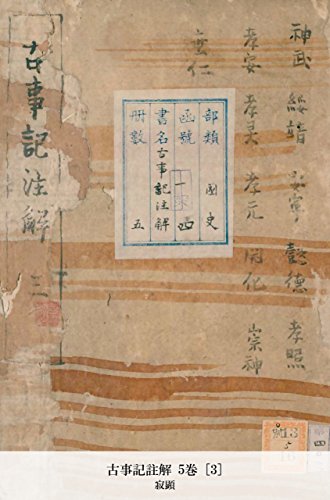 神武 綏靖 安寧 懿德 孝照
孝安 孝元 開化 崇神
垂仁
部類 國史
函號
書名 古事記注解
冊数 五
古事記注解 三
古事記註解 5巻 [3]
寂顕